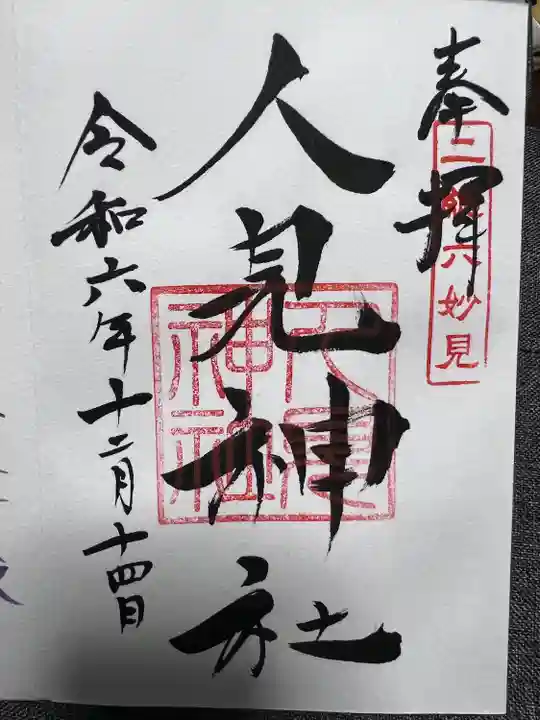 奉拝
二 六妙見
人見神社
人見神社
令和六年十二月十四日